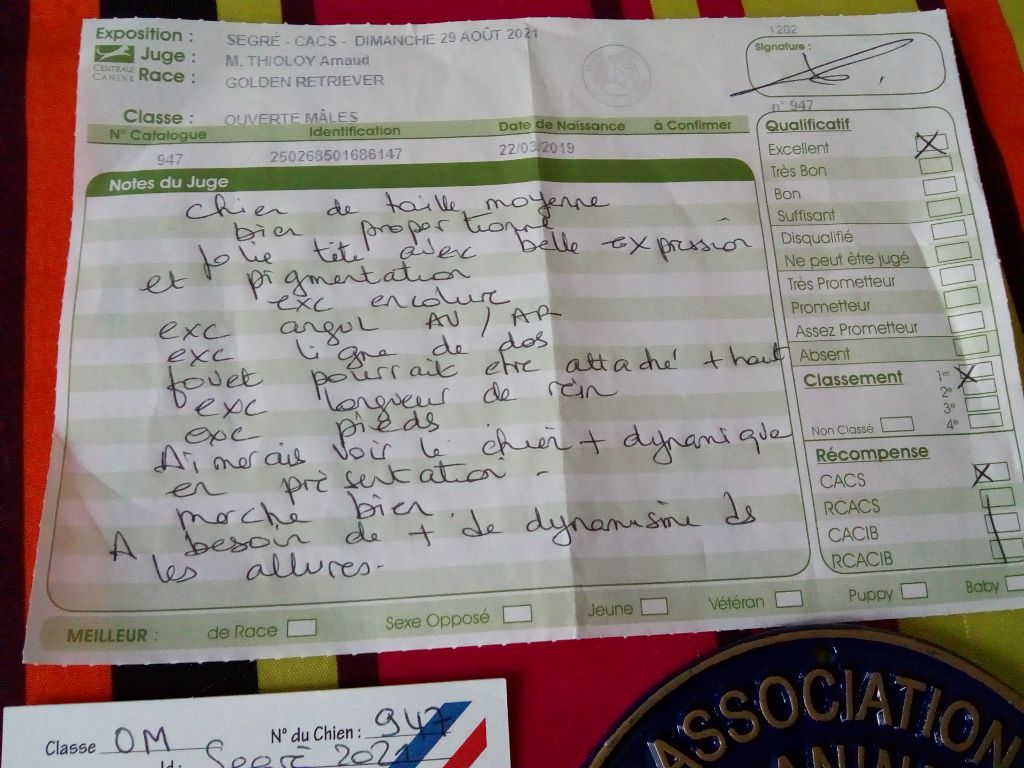 Exposition : SEGRÉ - CACS - DIMANCHE 29 AOÛT 2021
Juge : M. THIOLOY Arnaud
CENTRALE CANINE Race : GOLDEN RETRIEVER
Classe : OUVERTE MÂLES
N° Catalogue Identification Date de Naissance à Confirmer
947 250268501686147 22/03/2019
Notes du Juge
Chien de taille moyenne
bien proportionné
Jolie tête avec belle expression
et pigmentation
exc encolure
exc angul AV / AR
exc ligne de dos
fouet pourrait etre attaché + haut
exc longueur de rein
exc pieds
Aimerais voir le chien + dynamique
en présentation -
marche bien.
A besoin de + de dynamisme ds
les allures.
1202
Signature :
n° 947
Qualificatif
Excellent
Très Bon
Bon
Suffisant
Disqualifié
Ne peut être jugé
Très Prometteur
Prometteur
Assez Prometteur
Absent
Classement 1er
2e
3e
Non Classé 4e
Récompense
CACS
RCACS
CACIB
RCACIB
MEILLEUR : de Race Sexe Opposé Jeune Vétéran Puppy Baby
Classe OM N° du Chien : 947
Segré 2021
ASSOCIATION